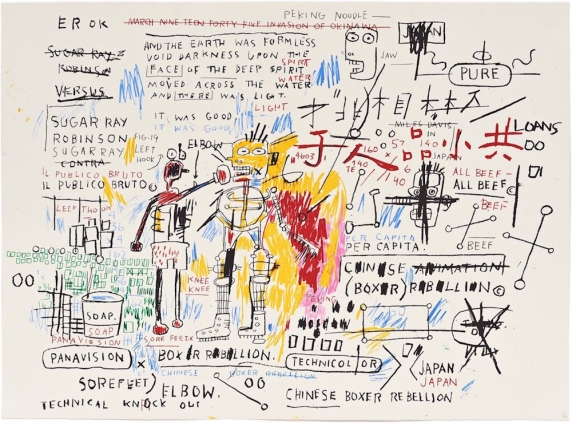 PEKING NOODLE
EROK
MARCH NINE TEEN FORTY FIVE INVASION OF OKINAWA
JAPAN
SUGAR RAY
ROBINSON
VERSUS
AND THE EARTH WAS FORMLESS
VOID DARKNESS UPON THE
FACE OF THE DEEP SPIRIT
SPIRIT
WATER
MOVED ACROSS THE WATER
AND THERE WAS LIGHT.
LIGHT
IT WAS GOOD
IT WAS GOOD
JAW
PURE
MILES DAVIS
IN
JAPAN
SUGAR RAY
ROBINSON
SUGAR RAY
CONTRA
IL PUBLICO BRUTO
IL PUBLICO BRUTO©
FIG.19
LEFT
HOOK
ELBOW
4603
160
57
140
140
40
千人品小共
LOANS
ALL BEEF
ALL BEEF©
BEEF
BEEF
LEFT
PER CAPITA
PER CAPITA.
CHINESE ANIMATION
(BOXER) REBELLION©
KNEE
KNEE
SOAP.
SOAP
PANAVISION
PANAVISION
SORE FEET X
MUSEUM
BOXER REBELLION.
CHINESE BOXER REBELLION
TECHNICOLOR
JAPAN
JAPAN
SOREFEET
ELBOW.
CHINESE BOXER REBELLION
TECHNICAL KNOCK OUT